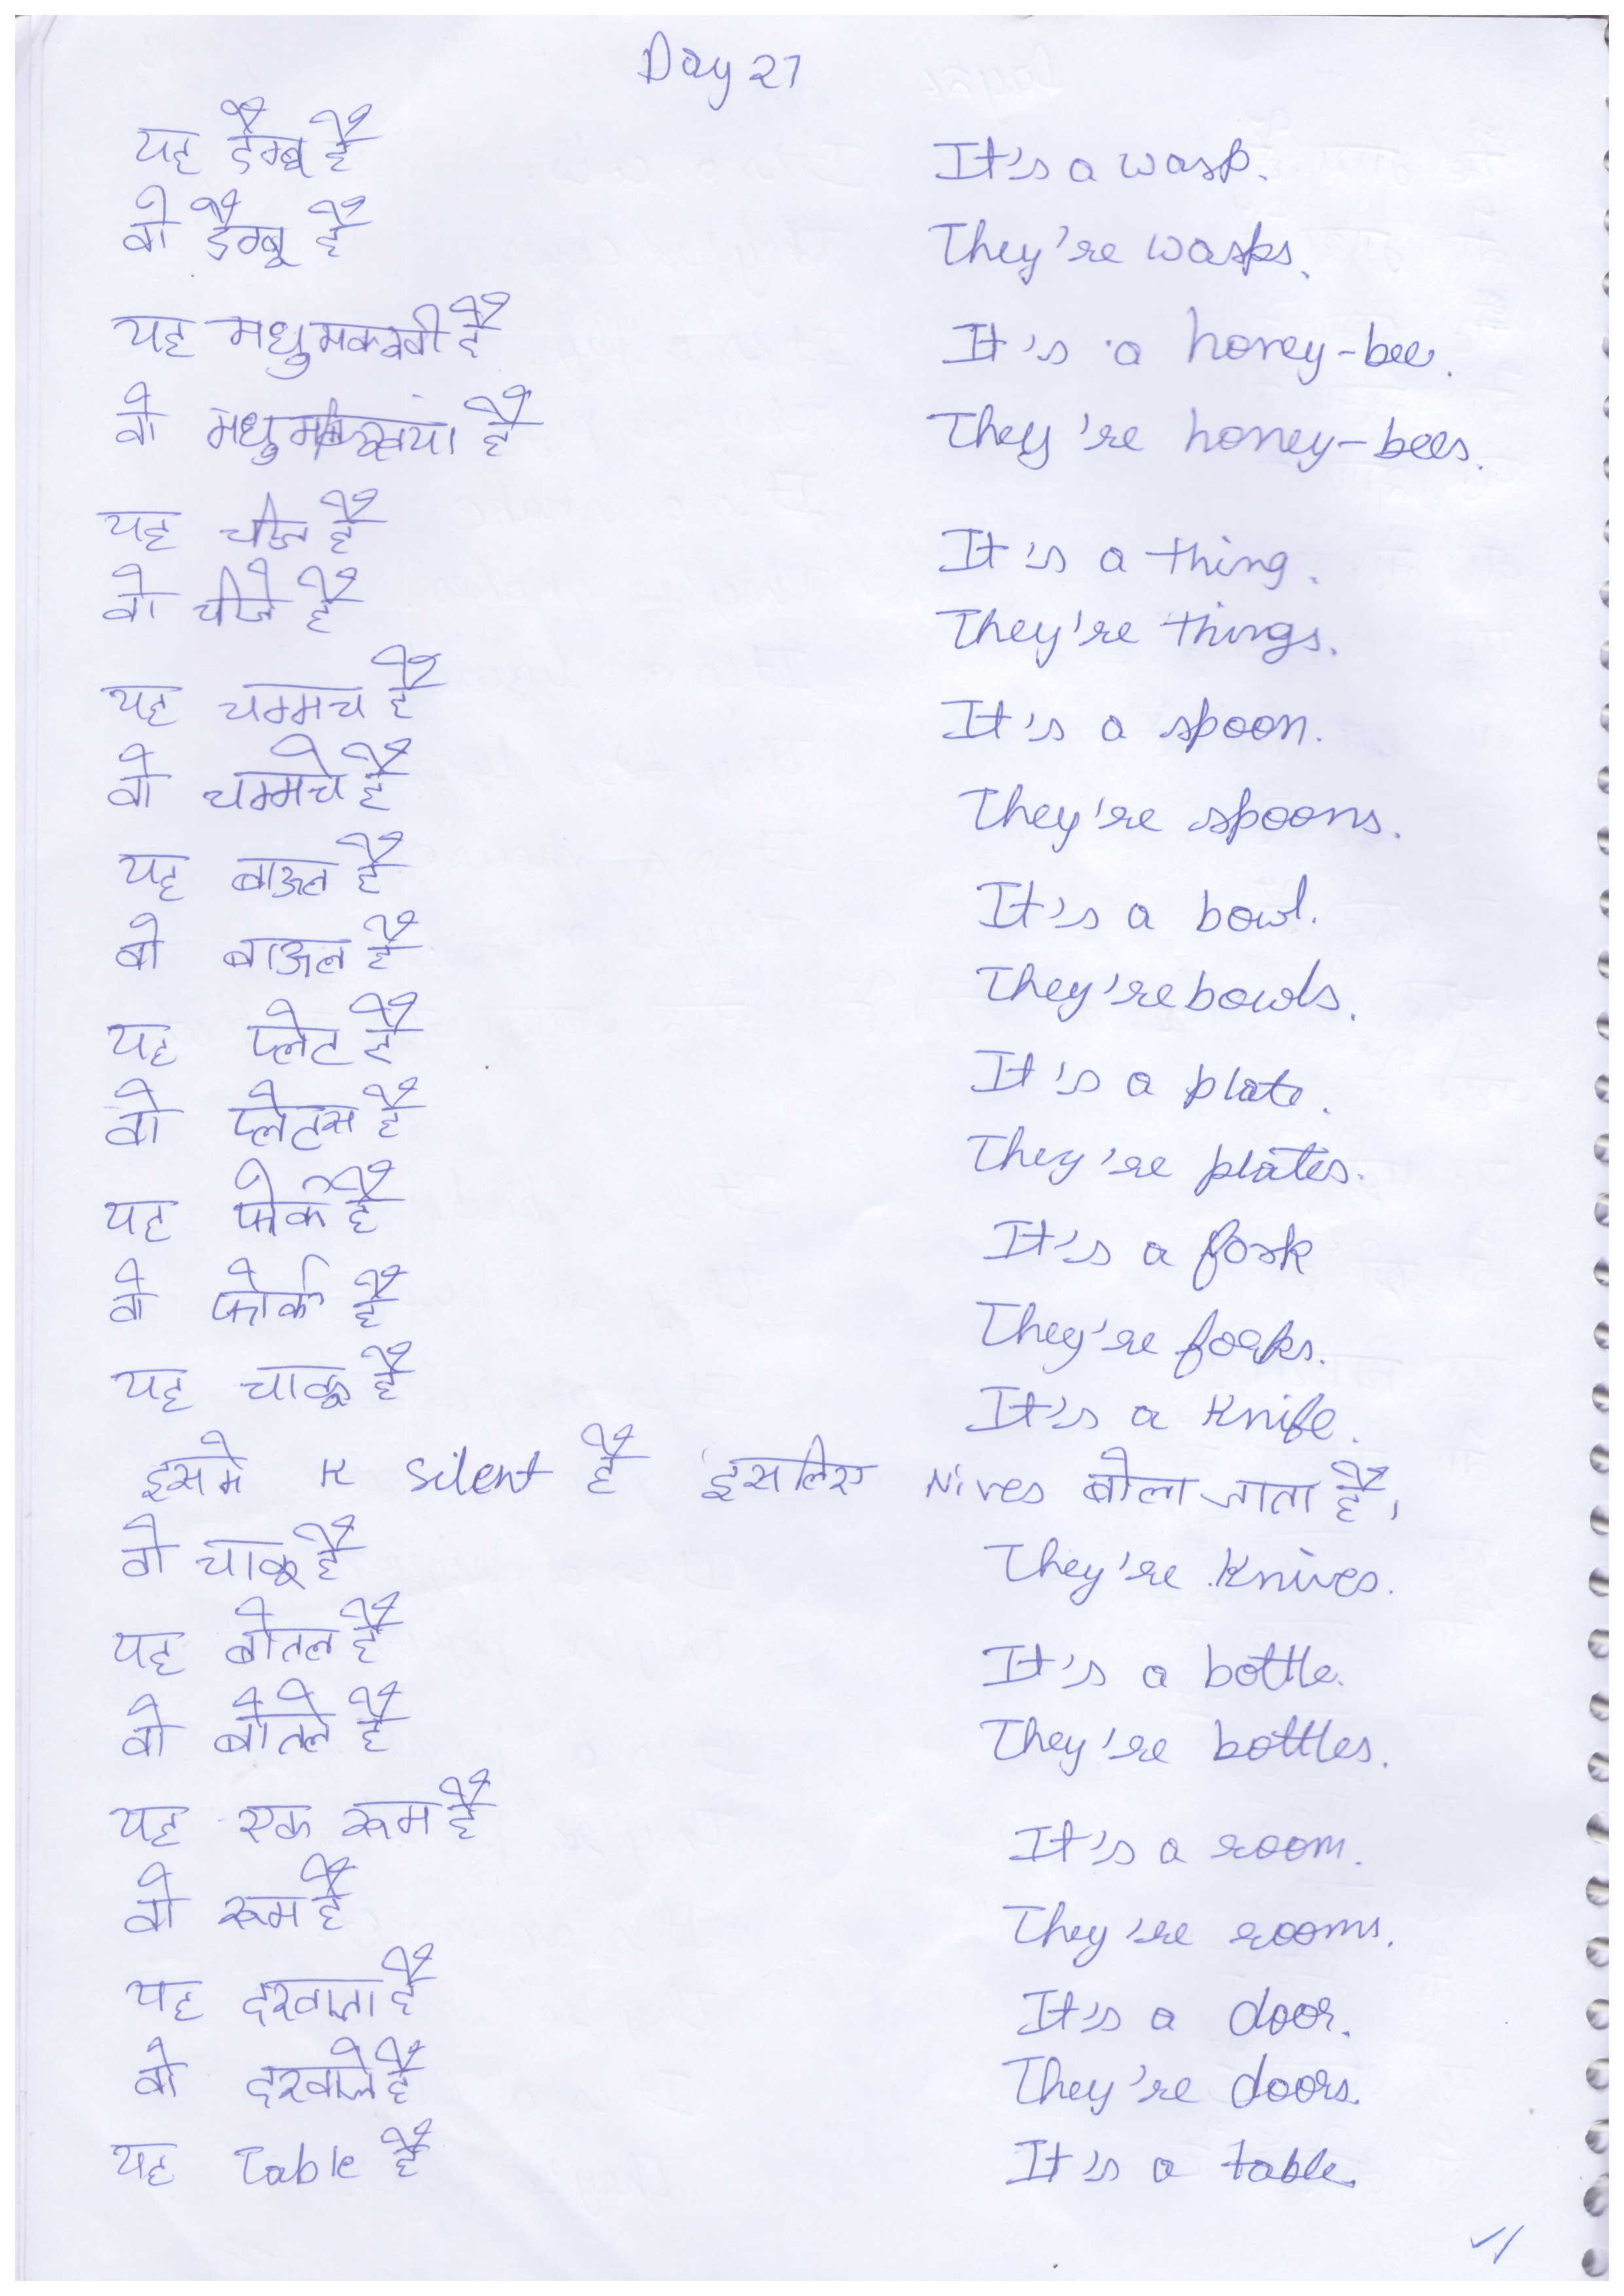 Day 27
यह डैम्बू है It's a wasp.
वो डैम्बू है They're wasps.
यह मधुमक्खी है It's a honey-bee.
वो मधुमक्खियां है They're honey-bees.
यह चीज है It's a thing.
वो चीजे है They're things.
यह चम्मच है It's a spoon.
वो चम्मचे है They're spoons.
यह बाऊल है It's a bowl.
वो बाऊल है They're bowls.
यह प्लेट है It's a plate.
वो प्लेटस है They're plates.
यह फोर्क है It's a fork
वो फोर्क है They're forks.
यह चाकू है It's a Knife.
इसमे K silent है इसलिए Nives बोला जाता है,
वो चाकू है They're Knives.
यह बोतल है It's a bottle.
वो बोतले है They're bottles.
यह एक रूम है It's a room.
वो रूम है They're rooms.
यह दरवाजा है It's a door.
वो दरवाजे है They're doors.
यह Table है It's a table.